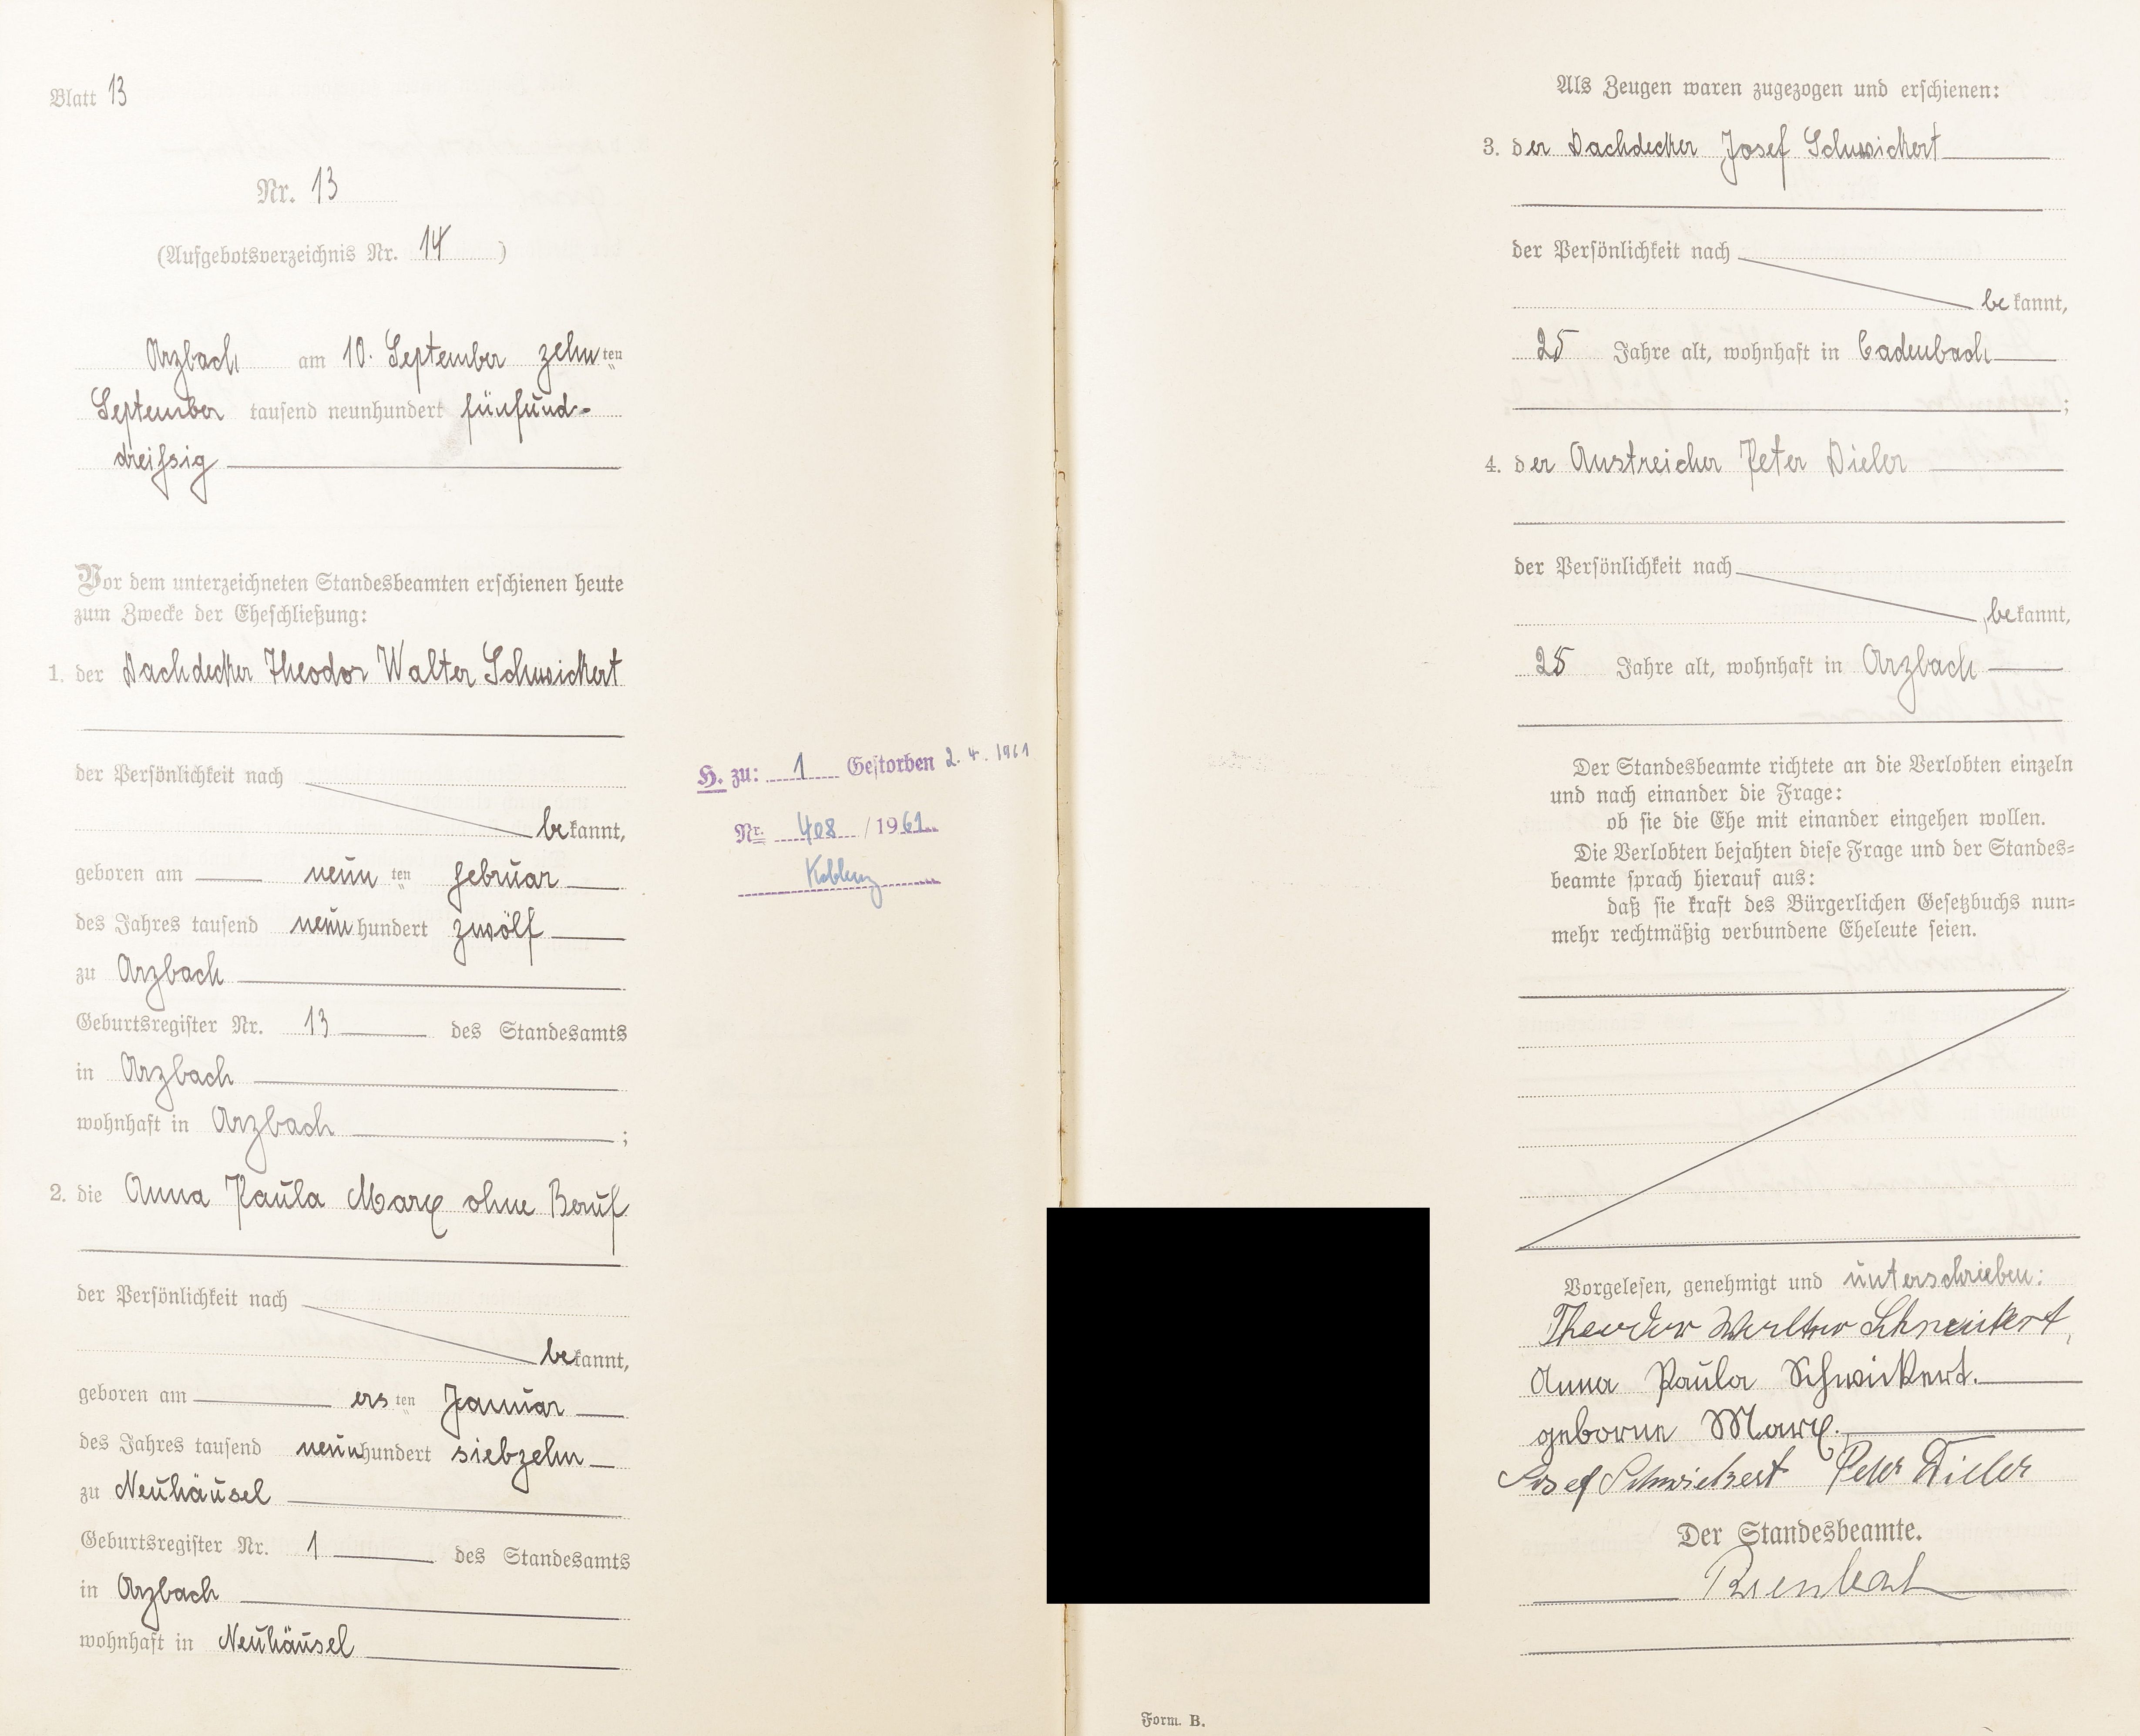 Blatt 13
Nr. 13
(Aufgebotsverzeichnis Nr. 14)
Arzbach am 10. September zehnten
September tausend neunhundert fünfund-
dreissig
Vor dem unterzeichneten Standesbeamten erschienen heute
zum Zwecke der Eheschließung:
1. der Dachdecker Theodor Walter Schwickert
der Persönlichkeit nach
bekannt,
geboren am neunten Februar
des Jahres tausend neunhundert zwölf
zu Arzbach
Geburtsregister Nr. 13 des Standesamts
in Arzbach
wohnhaft in Arzbach ;
2. die Anna Paula Marx ohne Beruf
der Persönlichkeit nach
bekannt,
geboren am ersten Januar
des Jahres tausend neunhundert siebzehn
zu Neuhäusel
Geburtsregister Nr. 1 des Standesamts
in Arzbach
wohnhaft in Neuhäusel
H. zu: 1 Gestorben 2. 4. 1961
Nr. 408 / 1961
Koblenz
Als Zeugen waren zugezogen und erschienen:
3. der Dachdecker Josef Schwickert
der Persönlichkeit nach
bekannt,
25 Jahre alt, wohnhaft in Cadenbach
;
4. der Anstreicher Peter Dieler
der Persönlichkeit nach
, bekannt,
25 Jahre alt, wohnhaft in Arzbach
Der Standesbeamte richtete an die Verlobten einzeln
und nach einander die Frage:
ob sie die Ehe mit einander eingehen wollen.
Die Verlobten bejahten diese Frage und der Standes-
beamte sprach hierauf aus:
daß sie kraft des Bürgerlichen Gesetzbuchs nun-
mehr rechtmäßig verbundene Eheleute seien.
Vorgelesen, genehmigt und unterschrieben:
Theodor Walter Schwickert,
Anna Paula Schwickert.
geborne Marx.
Josef Schwickert Peter Dieler
Der Standesbeamte.
Form. B.